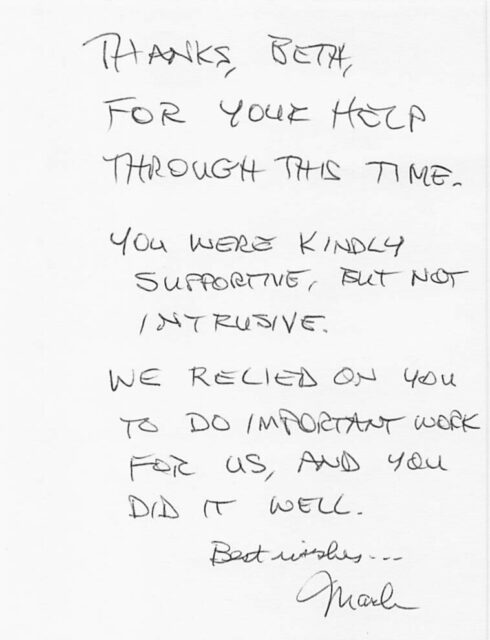 THANKS, BETH,
FOR YOUR HELP
THROUGH THIS TIME.
YOU WERE KINDLY
SUPPORTIVE, BUT NOT
INTRUSIVE.
WE RELIED ON YOU
TO DO IMPORTANT WORK
FOR US, AND YOU
DID IT WELL.
Best wishes...